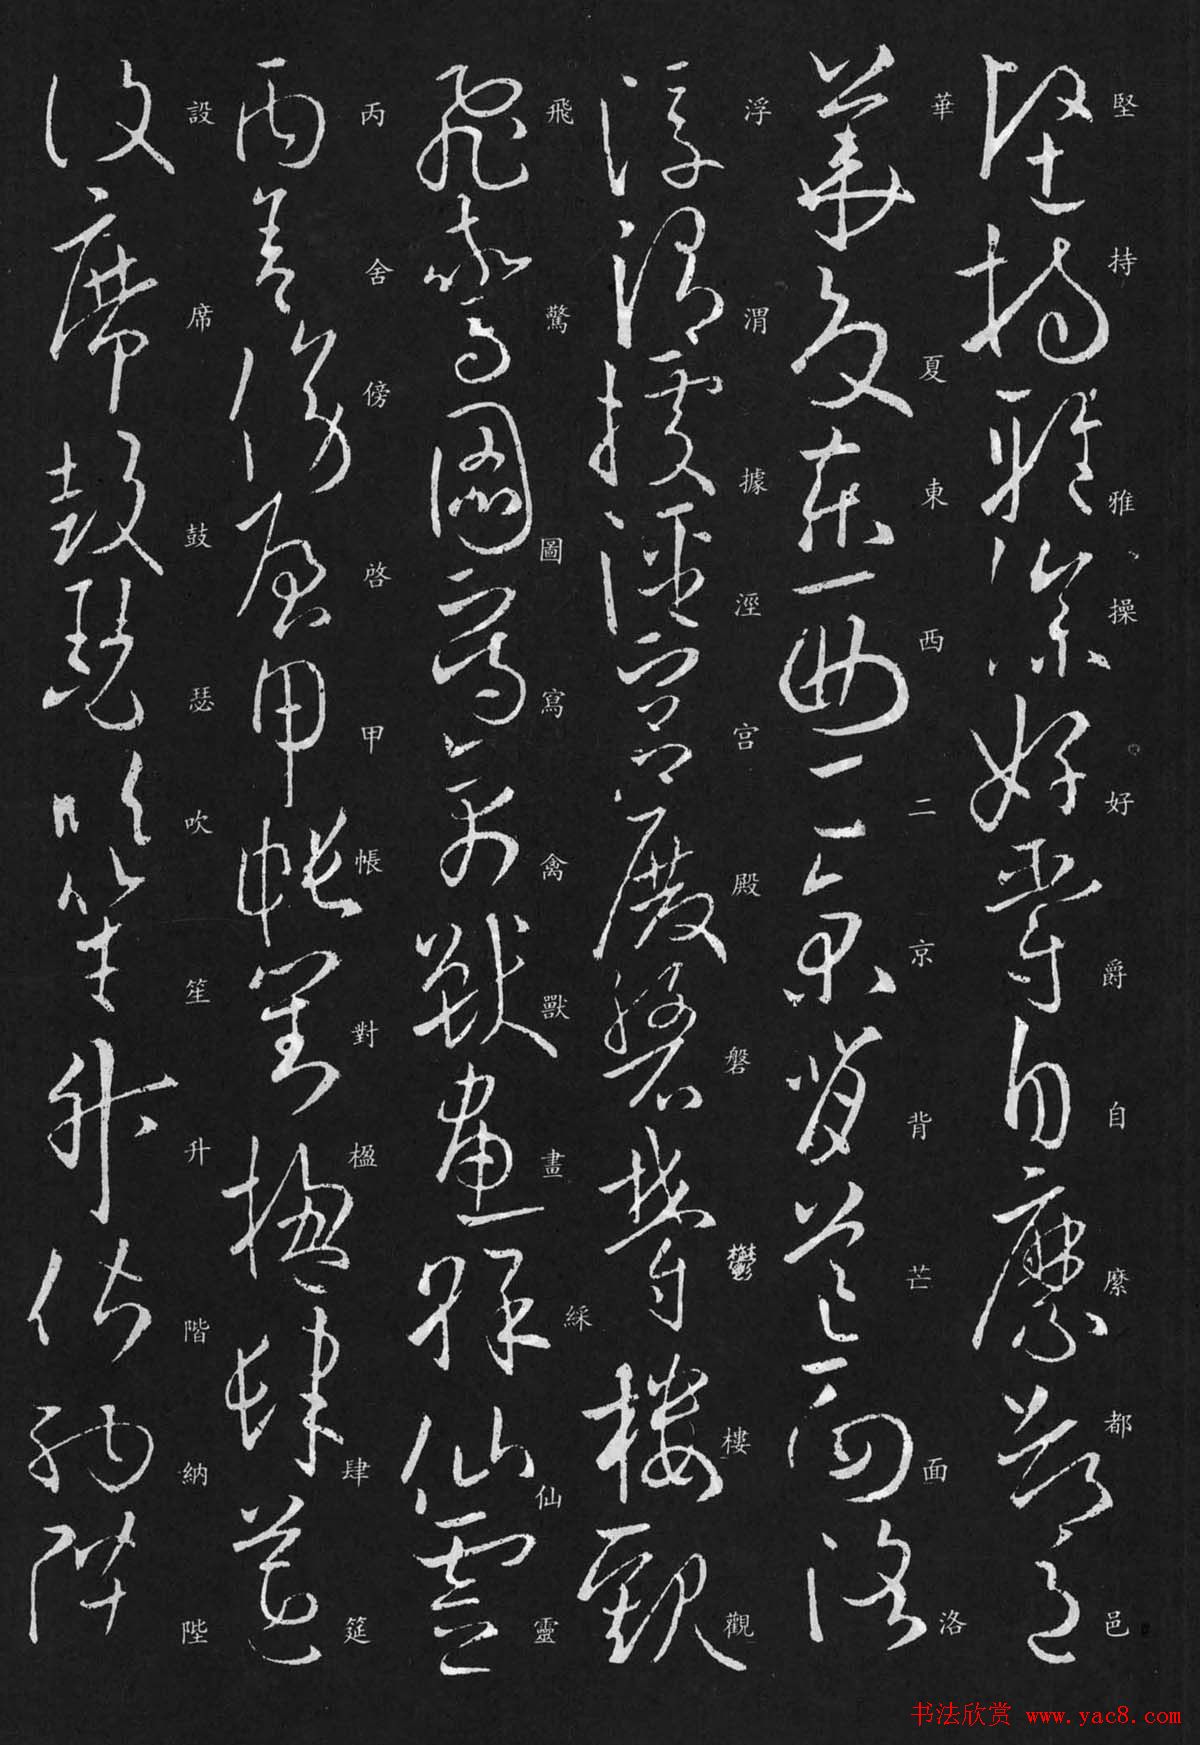 堅持雅操好爵自縻都邑
華夏東西二京背芒面洛
浮渭據涇宮殿磐鬱樓觀
飛驚圖寫禽獸畫綵仙靈
丙舍傍啓甲帳對楹肆筵
設席鼓瑟吹笙升階納陛
书法欣赏 www.yac8.com